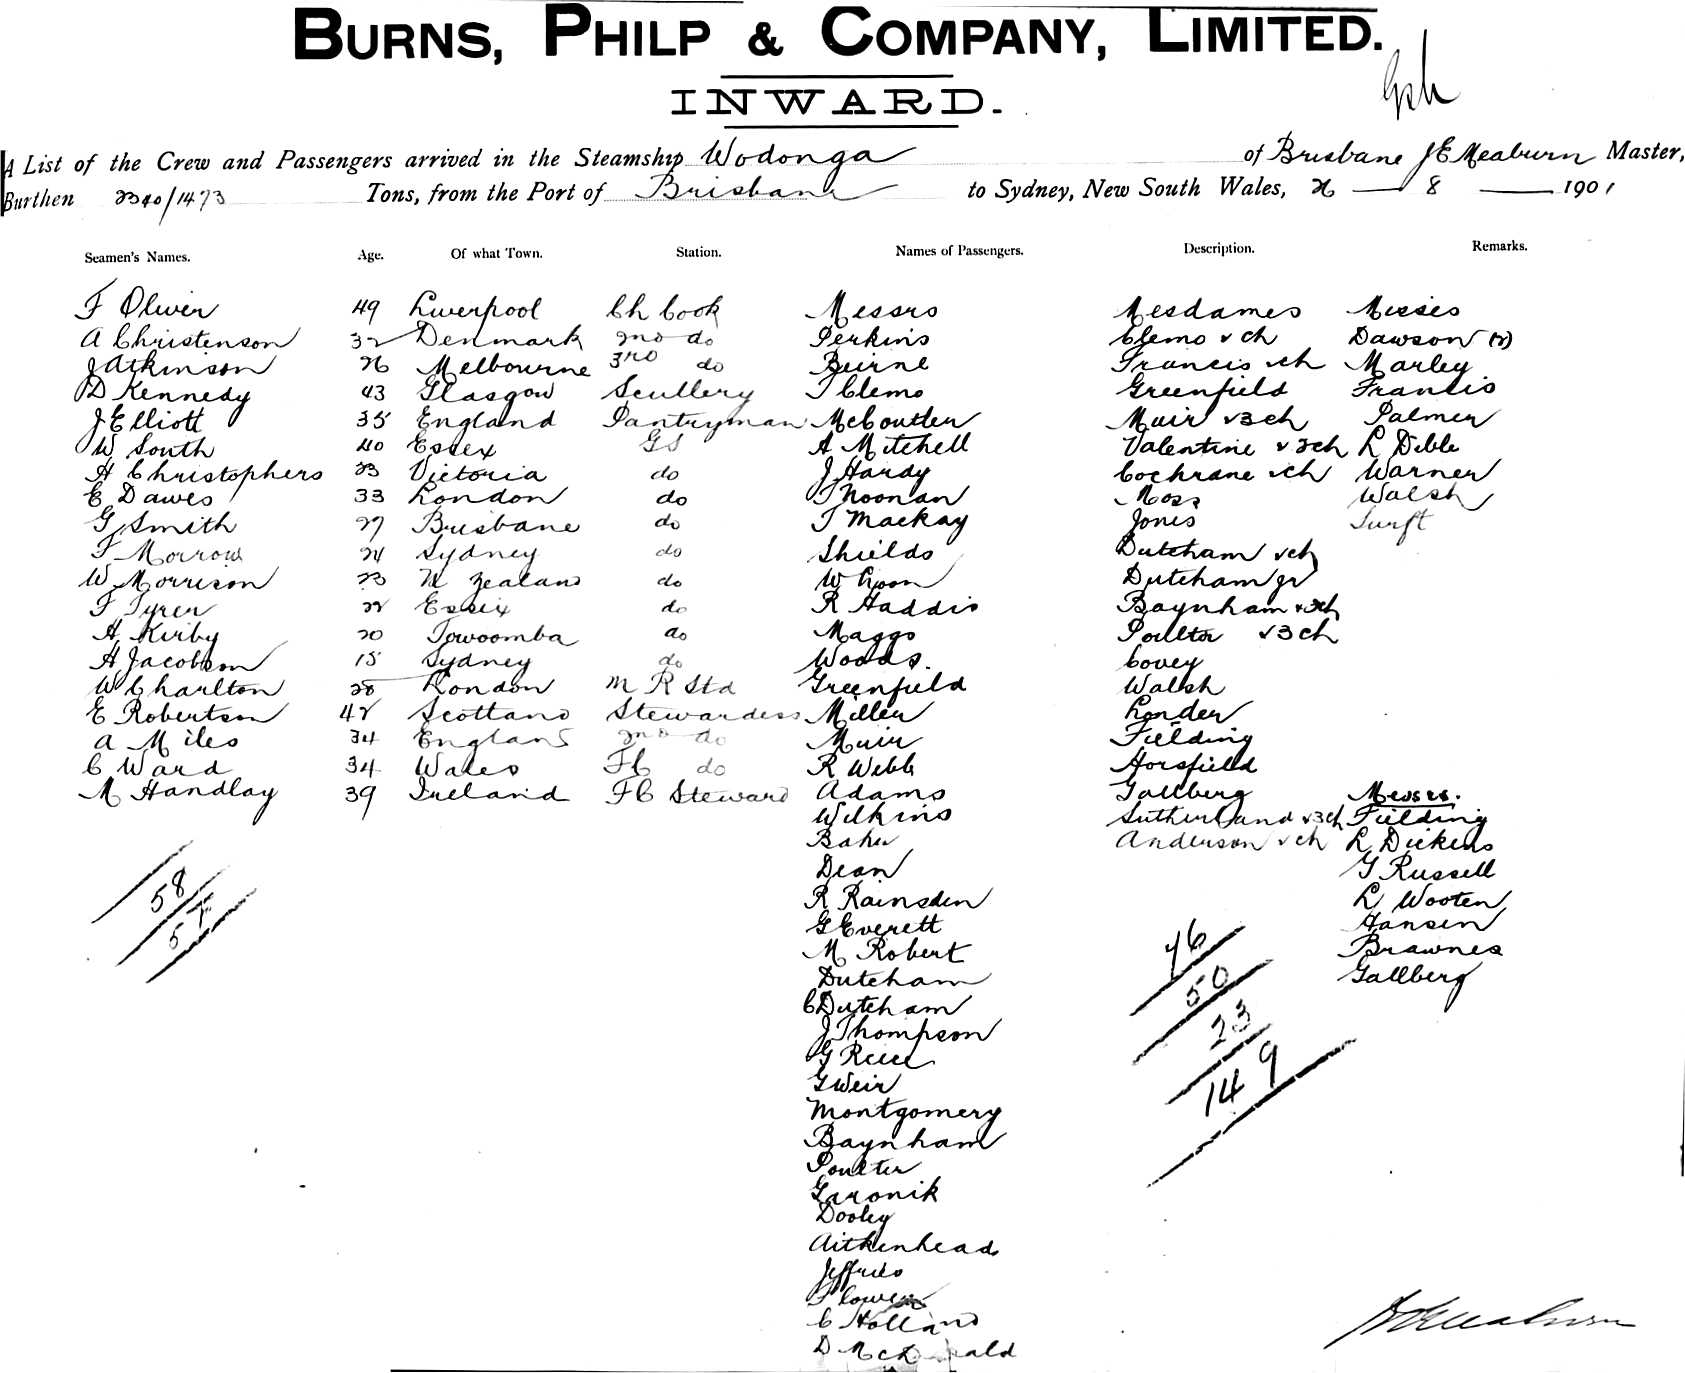 BURNS, PHILP & COMPANY, LIMITED.
INWARD.
A List of the Crew and Passengers arrived in the Steamship Wodonga of Brisbane J E Meaburn Master,
Burthen 2340/1473 Tons, from the Port of Brisbane to Sydney, New South Wales, 8 1901
Seamen's Names. Age. Of what Town. Station. Names of Passengers. Description. Remarks.
F Oliver 49 Liverpool Ch Cook Messrs Mesdames Misses
A Christenson 32 Denmark 2nd do Perkins Clemo & ch Dawson (2)
J Atkinson 26 Melbourne 3rd do Beirne Francis & ch Marley
D Kennedy 43 Glasgow Scullery T Clemo Greenfield Francis
J Elliott 35 England Pantryman McCoutler Muir & 3 ch Palmer
W South 40 Essex GS A Mitchell Valentine & 2 ch L Dibble
H Christophers 23 Victoria do J Hardy Cochrane & ch Warner
E Dawes 33 London do T Noonan Moss Walsh
G Smith 27 Brisbane do T Mackay Jones Swift
F Morrow 24 Sydney do Shields Dutcham & ch
W Morrison 23 N Zealand do W Goon Dutcham jr
F Tyrer 22 Essex do R Haddis Baynham & 2 ch
H Kirby 20 Towoomba do Maggs Poulter & 3 ch
H Jacobson 15 Sydney do Woods. Covey
W Charlton 28 London M R Std Greenfield Walsh
E Robertson 42 Scotland Stewardess Miller Londer
A Miles 34 England 2nd do Muir Fielding
C Ward 34 Wales FC do R Webb Horsfield
M Handlay 39 Ireland FC Steward Adams Gallberg Messrs.
Wilkins Sutherland & 3 ch Fielding
Baker Anderson & ch L Dickens
Dean G Russell
R Rainsden L Wooten
G Everett Hansen
M Robert Brawnes
Dutcham Gallberg
C Dutcham
J Thompson
G Reece
G Weir
Montgomery
Baynham
Poulter
Garonik
Dooley
Aitkenhead
Jeffries
F Cowen
C Holland
D McDonald
58
57
46
50
23
149